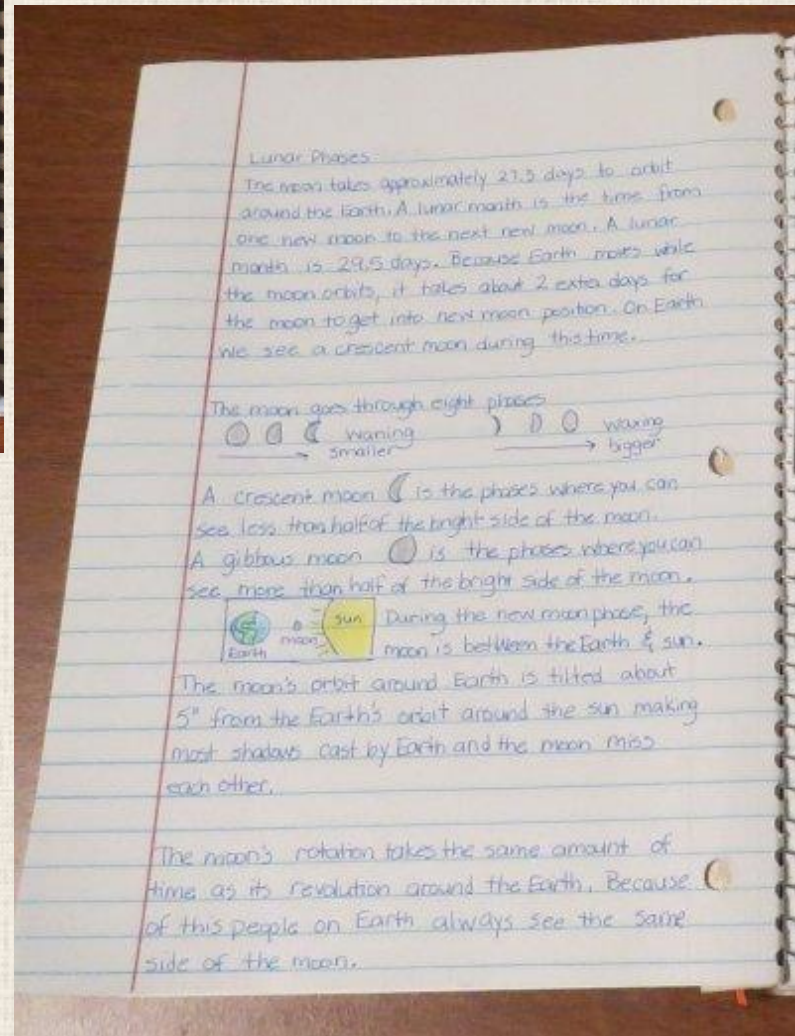 Lunar Phases
The moon takes approximately 27.3 days to orbit
around the Earth. A lunar month is the time from
one new moon to the next new moon. A lunar
month is 29.5 days. Because Earth moves while
the moon orbits, it takes about 2 extra days for
the moon to get into new moon position. On Earth
we see a crescent moon during this time.
The moon goes through eight phases
waning waxing
smaller bigger
A crescent moon is the phases where you can
see less than half of the bright side of the moon.
A gibbous moon is the phases where you can
see more than half of the bright side of the moon.
Earth moon sun During the new moon phase, the
moon is between the Earth & sun.
The moon's orbit around Earth is tilted about
5° from the Earth's orbit around the sun making
most shadows cast by Earth and the moon miss
each other.
The moon's rotation takes the same amount of
time as its revolution around the Earth. Because
of this people on Earth always see the same
side of the moon.